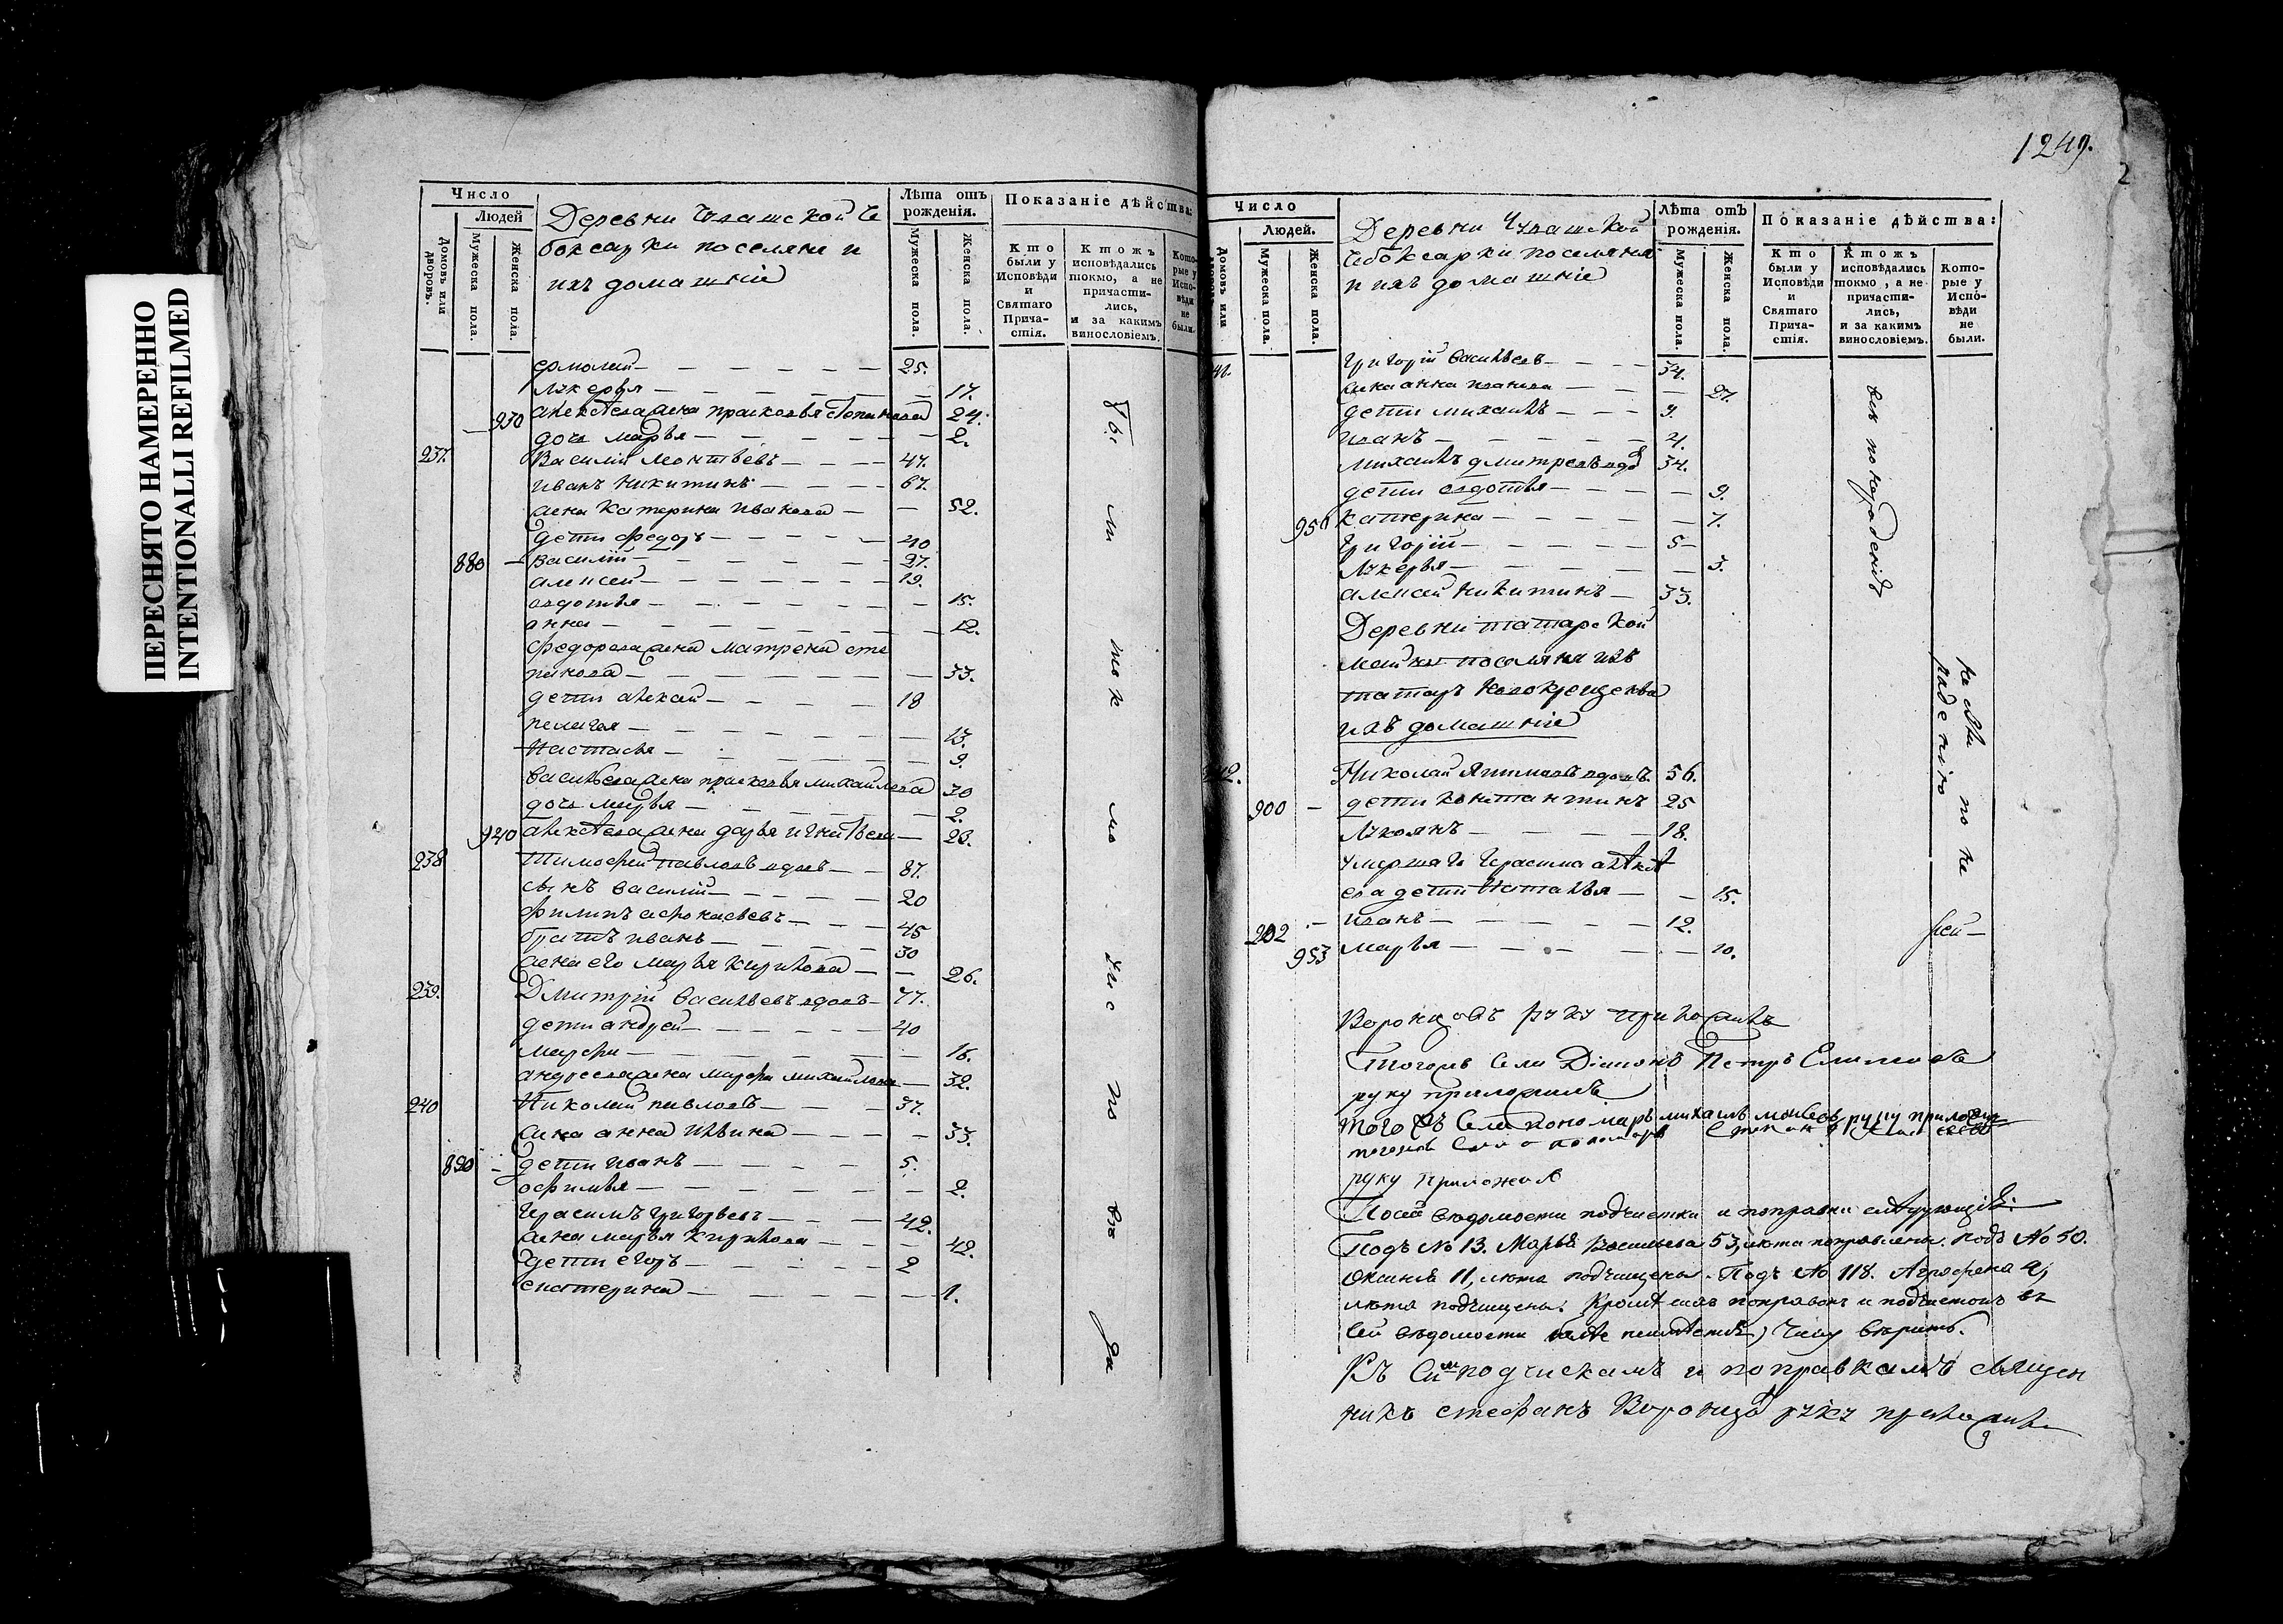 ПЕРЕСНЯТО НАМЕРЕННО
INTENTIONALLI REFILMED
Число
Людей
Домовъ или дворовъ.
Мужеска пола.
Женска пола.
Деревни Чувашской Че
боксарки поселяне и
ихъ домашнiе
Лѣта отъ рожденiя.
Мужеска пола.
Женска пола.
Показанiе дѣйства:
Кто были у Исповѣди и Святаго Причастiя.
Ктожъ исповѣдались токмо, а не причастились, и за какимъ винословiемъ.
Которые у Исповѣди не были.
ермолай 25.
лукерья 17.
930 алексѣева жена прасковья степанова 24.
дочь марья 2.
237. Василiй Леонтьевъ 47.
иванъ никитинъ 67.
жена катерина иванова 52.
дѣти федоръ 40
880 василiй 27.
алексей 19.
авдотья 15.
анна 12.
федорова жена матрена сте
панова 33.
дети алексай 18
пелагея 13.
настасья 9.
васильева жена прасковья михайлова 30
дочь марья 2.
940 алексѣева жена дарья игнатьева 23.
238 Тимофей павловъ вдовъ 87.
сынъ василiй 20
филипъ афонасьевъ 45
братъ иванъ 30
жена его марья кирилова 26.
239. Дмитрiй васильевъ вдовъ 77.
дети андрей 40
марфа 16.
андреева жена марфа михайлова 32.
240 Николай павловъ 37.
жена анна ильина 33.
890 дети иванъ 5.
офимья 2.
герасимъ григорьевъ 42.
жена марья кирилова 42.
дети егоръ 2
екатерина 1.
1249.
2
Число
Людей.
Домовъ или
Мужеска пола.
Женска пола.
Деревни Чувашской
Чебоксарки поселяня
и ихъ домашнiе
Лѣта отъ рожденiя.
Мужеска пола.
Женска пола.
Показанiе дѣйства:
Кто были у Исповѣди и Святаго Причастiя.
Ктожъ исповѣдались токмо, а не причастились, и за какимъ винословiемъ.
Которые у Исповѣди не были.
41. григорiй васильевъ 34.
жена анна иванова 27.
дети михаилъ 9.
иванъ 4.
михаилъ дмитревъ вдо 34.
дети евдотья 9.
950 катерина 7.
григорiй 5
лукерья 3.
алексей никитинъ 33.
Деревни татарской
майны поселяня изъ
татаръ новокрещеныя
ихъ домашнiе
242. Николай вдовъ 56.
900 дети константинъ 25
лукоянъ 18.
умершаго герасима алексѣ
ева дети наталья 15.
202 иванъ 12.
953 марья 10.
не были по не
раденiю
Воронцовъ руку приложилъ
Тогожъ села Дiаконъ Петръ
руку приложилъ
того жъ села пономарь михаилъ руку приложилъ
тогожъ села пономарь
руку приложилъ
По сей вѣдомости подчистки и поправки слѣдующiя:
Подъ № 13. Марья Васильева 53, лѣта поправлены. подъ № 50.
Оксинья 11, лѣта подчищены. Подъ № 118. Агрофена 4,
лѣта подчищены. Кромѣ сихъ поправокъ и подчистокъ въ
сей вѣдомости болѣе
Къ симъ подчискамъ и поправкамъ священ
никъ стефанъ Воронцовъ руку приложилъ